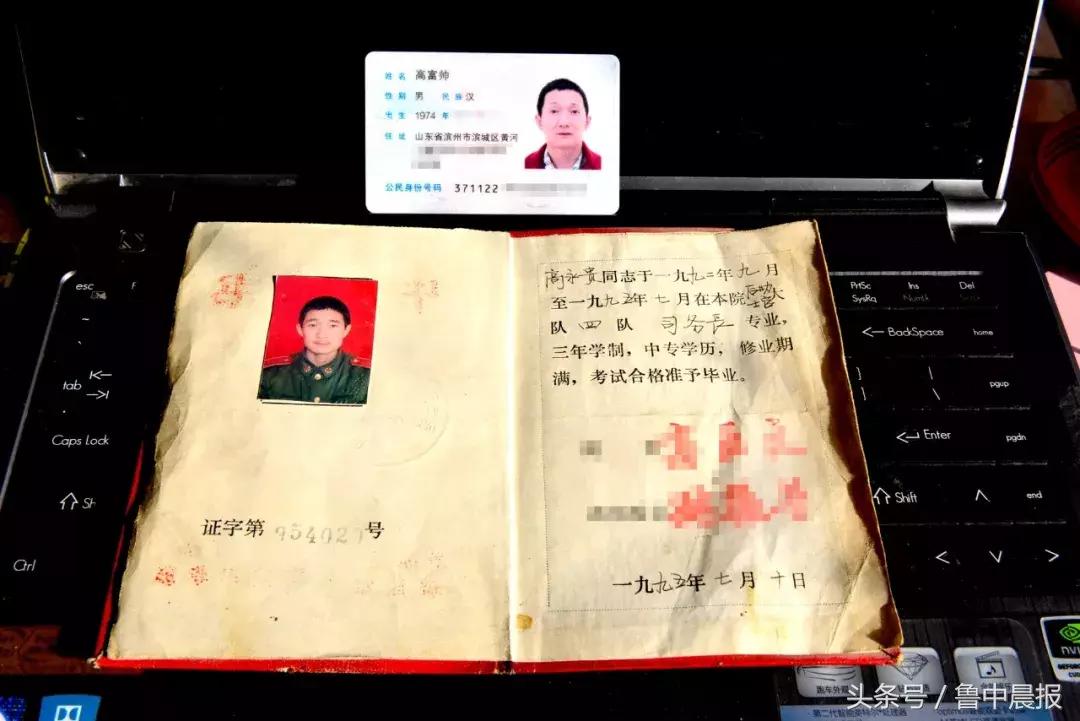 姓名 高富帅
性别 男 民族 汉
出生 1974 年
住址 山东省滨州市滨城区黄河
公民身份号码 371122
高永贵同志于一九九二年九月
至一九九五年七月在本院
队四队 司务长 专业，
三年学制，中专学历，修业期
满，考试合格准予毕业。
证字第 954027 号
一九九五年七月十日
esc
tab
Caps Lock
Sh
Ctrl
PrtSc
SysRq
Ins
NumLk
Del
BackSpace
home
pgup
Enter
pgdn
Shift
end
跑车外观
第二代智能英特尔®处理器
头条号 / 鲁中晨报